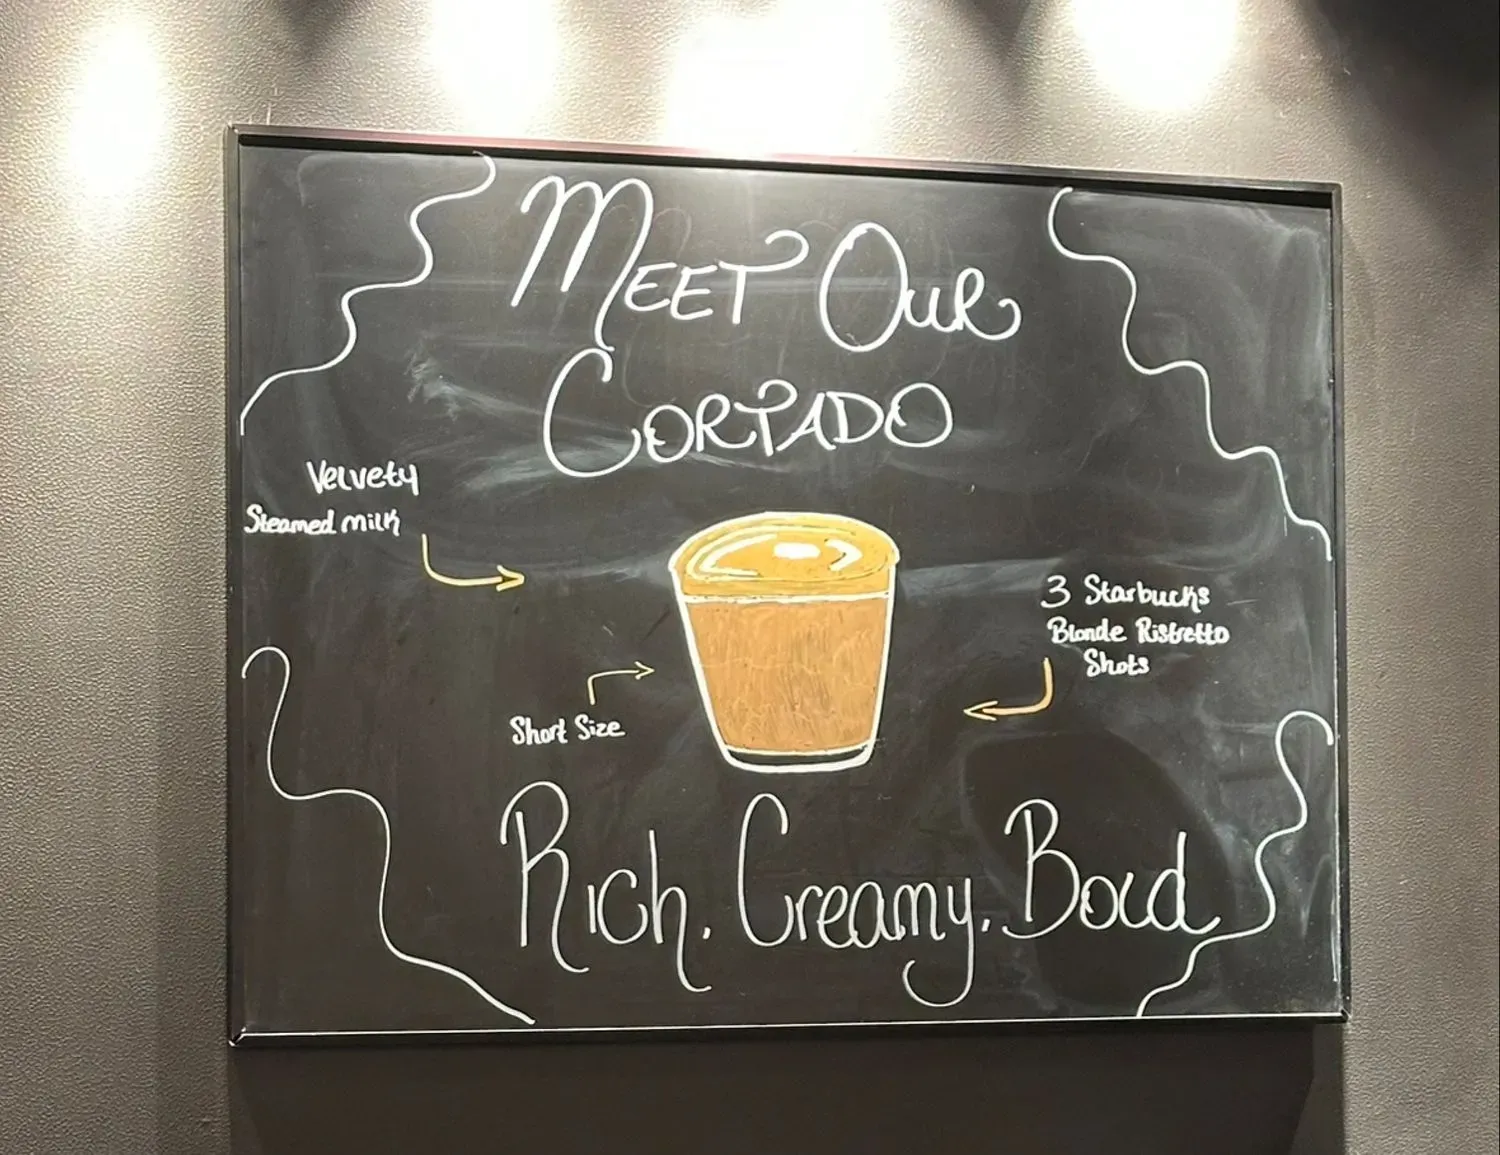 MEET OUR
CORTADO
Velvety
Steamed milk
3 Starbucks
Blonde Ristretto
Shots
Short Size
Rich. Creamy. Bold